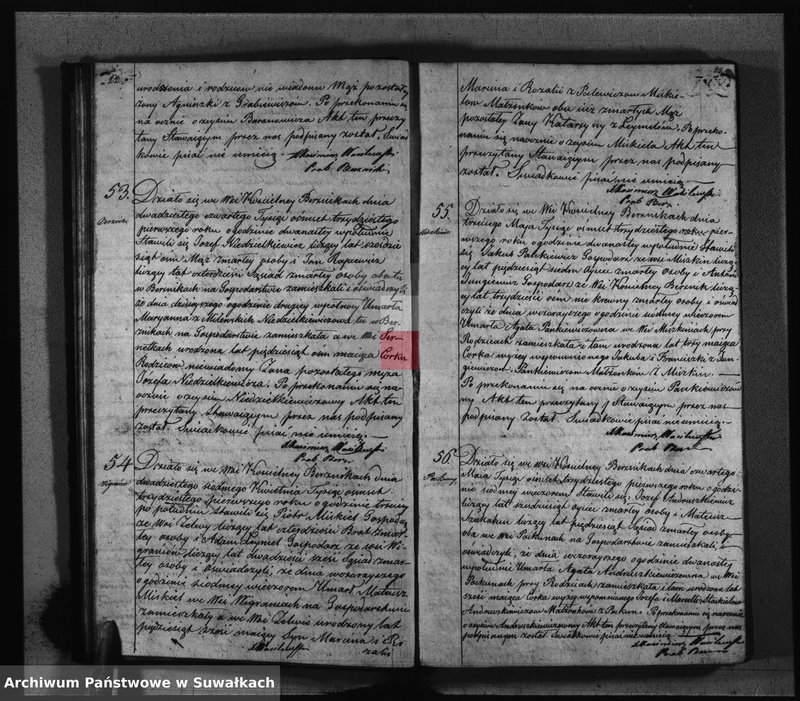 urodzenia i rodziców nie wiadomi Mąż pozostałey
żony Agnieszki z Grabiewiczów. Po przekonaniu się
na ocznie o zeyściu Akt ten przeczy
tany Stawaiącym przez nas podpisany został. Świad
kowie pisać nie umieią
Prob. Berżnik
53.
Działo się we Wsi Kościelney Berżnikach dnia
dwudziestego czwartego Tysiąc ośmset trzydziestego
pierwszego roku o godzinie dwunastey w południe
Stawili się Jozef Niedzielkiewicz liczący lat sześćdzie
siąt osm Mąż zmarłey osoby i Jan
liczący lat czterdzieści Sąsiad zmarłey osoby obadwa
w Berżnikach na Gospodarstwie zamieszkali i oświadczyli
że dnia dzisieyszego o godzinie drugiey w północy Umarła
Maryanna z Niedzielkiewiczowa tu w Ber
żnikach na Gospodarstwie zamieszkała a w Wsi Ber
urodzona lat pięćdziesiąt osm maiąca Corka
Rodziców niewiadomych Zona pozostałego męża
Józefa Niedzielkiewicza. Po przekonaniu się na
ocznie o zeyściu Niedzielkiewiczowy Akt ten
przeczytany Stawaiącym przez nas podpisany
został. Świadkowie pisać nie umieią
Prob. Berż
54
Działo się we Wsi Kościelney Berżnikach dnia
dwudziestego siodmego Kwietnia Tysiąc ośmset
trzydziestego pierwszego roku o godzinie trzeciey
po południu stawili się Piotr Miskiel Gospodarz
ze Wsi Zelwy liczący lat czterdzieści Brat zmar
łey osoby i Adam Leymel Gospodarz ze wsi Wi
granców liczący lat dwadzieścia sześć Sąsiad zmar
łey osoby i Oświadczyli, że dnia wczorayszego
o godzinie siodmey wieczorem Umarł Mateusz
Miskiel we Wsi Wigrańcach na Gospodarstwie
zamieszkały a we Wsi Zelwie urodzony lat
pięćdziesiąt sześć maiący Syn Marcina i Ro
zalii
Marcina i Rozalii z Palewiczow Miskie
low Małżonkow obu iuż zmarłych Mąż
pozostałey Zony Katarzyny z Leymelow. Po przeko
naniu się naocznie o zeyściu Miskiela Akt ten
przeczytany Stawaiącym przez nas podpisany
został. Świadkowie pisać nie umieią
Prob Berż
55
Działo się we Wsi Kościelney Berżnikach dnia
trzeciego Maja Tysiąc ośmset trzydziestego roku pier
wszego roku o godzinie dwunastey w południe Stawili
się Jakub Pankiewicz Gospodarz ze wsi Miszkin liczą
cy lat pięćdziesiąt siedm Oyciec zmarłey osoby i Antoni
Jungiewicz Gospodarz ze Wsi Kościelney Berżnik liczą
cy lat trzydzieści osm nie krewny zmarłey osoby i oświad
czyli że dnia wczorayszego o godzinie siodmey wieczorem
Umarła Agata Pankiewiczowna we Wsi przy
Rodzicach zamieszkała i tam urodzona lat trzy maiąca
Corka wyżey wspomnionego Jakuba i Franciszki z Jun
giewiczow Pankiewiczow Małżonkow z Miszkin
Po przekonaniu się na ocznie o zeyściu Pankiewiczowny
Akt ten przeczytany Stawaiącym przez nas
podpisany został. Świadkowie pisać nie umieią
Prob Berż
56
Działo się we Wsi Kościelney Berżnikach dnia czwartego
Maja Tysiąc ośmset trzydziestego pierwszego roku o godzi
nie siodmey wieczorem Stawili się Jozef Andruszkiewicz
liczący lat sześćdziesiąt oyciec zmarłey osoby i Mateusz
Szakalun liczący lat pięćdziesiąt Sąsiad zmarłey osoby
oba we Wsi na Gospodarstwie zamieszkali, i
oświadczyli, że dnia wczorayszego o godzinie dwunastey
w południe Umarła Agata Andruszkiewiczowna w Wsi
przy Rodzicach zamieszkała i tam urodzona lat
sześć maiąca Corka wyżey wspomnionego Jozefa i Marcelli z
Andruszkiewiczow Małżonkow z Po przekonaniu się naocznie
o zeyściu Andruszkiewiczowny Akt ten przeczytany Stawaiącym przez nas
podpisany został. Świadkowie pisać nie umieią
Prob Berż
Archiwum Państwowe w Suwałkach